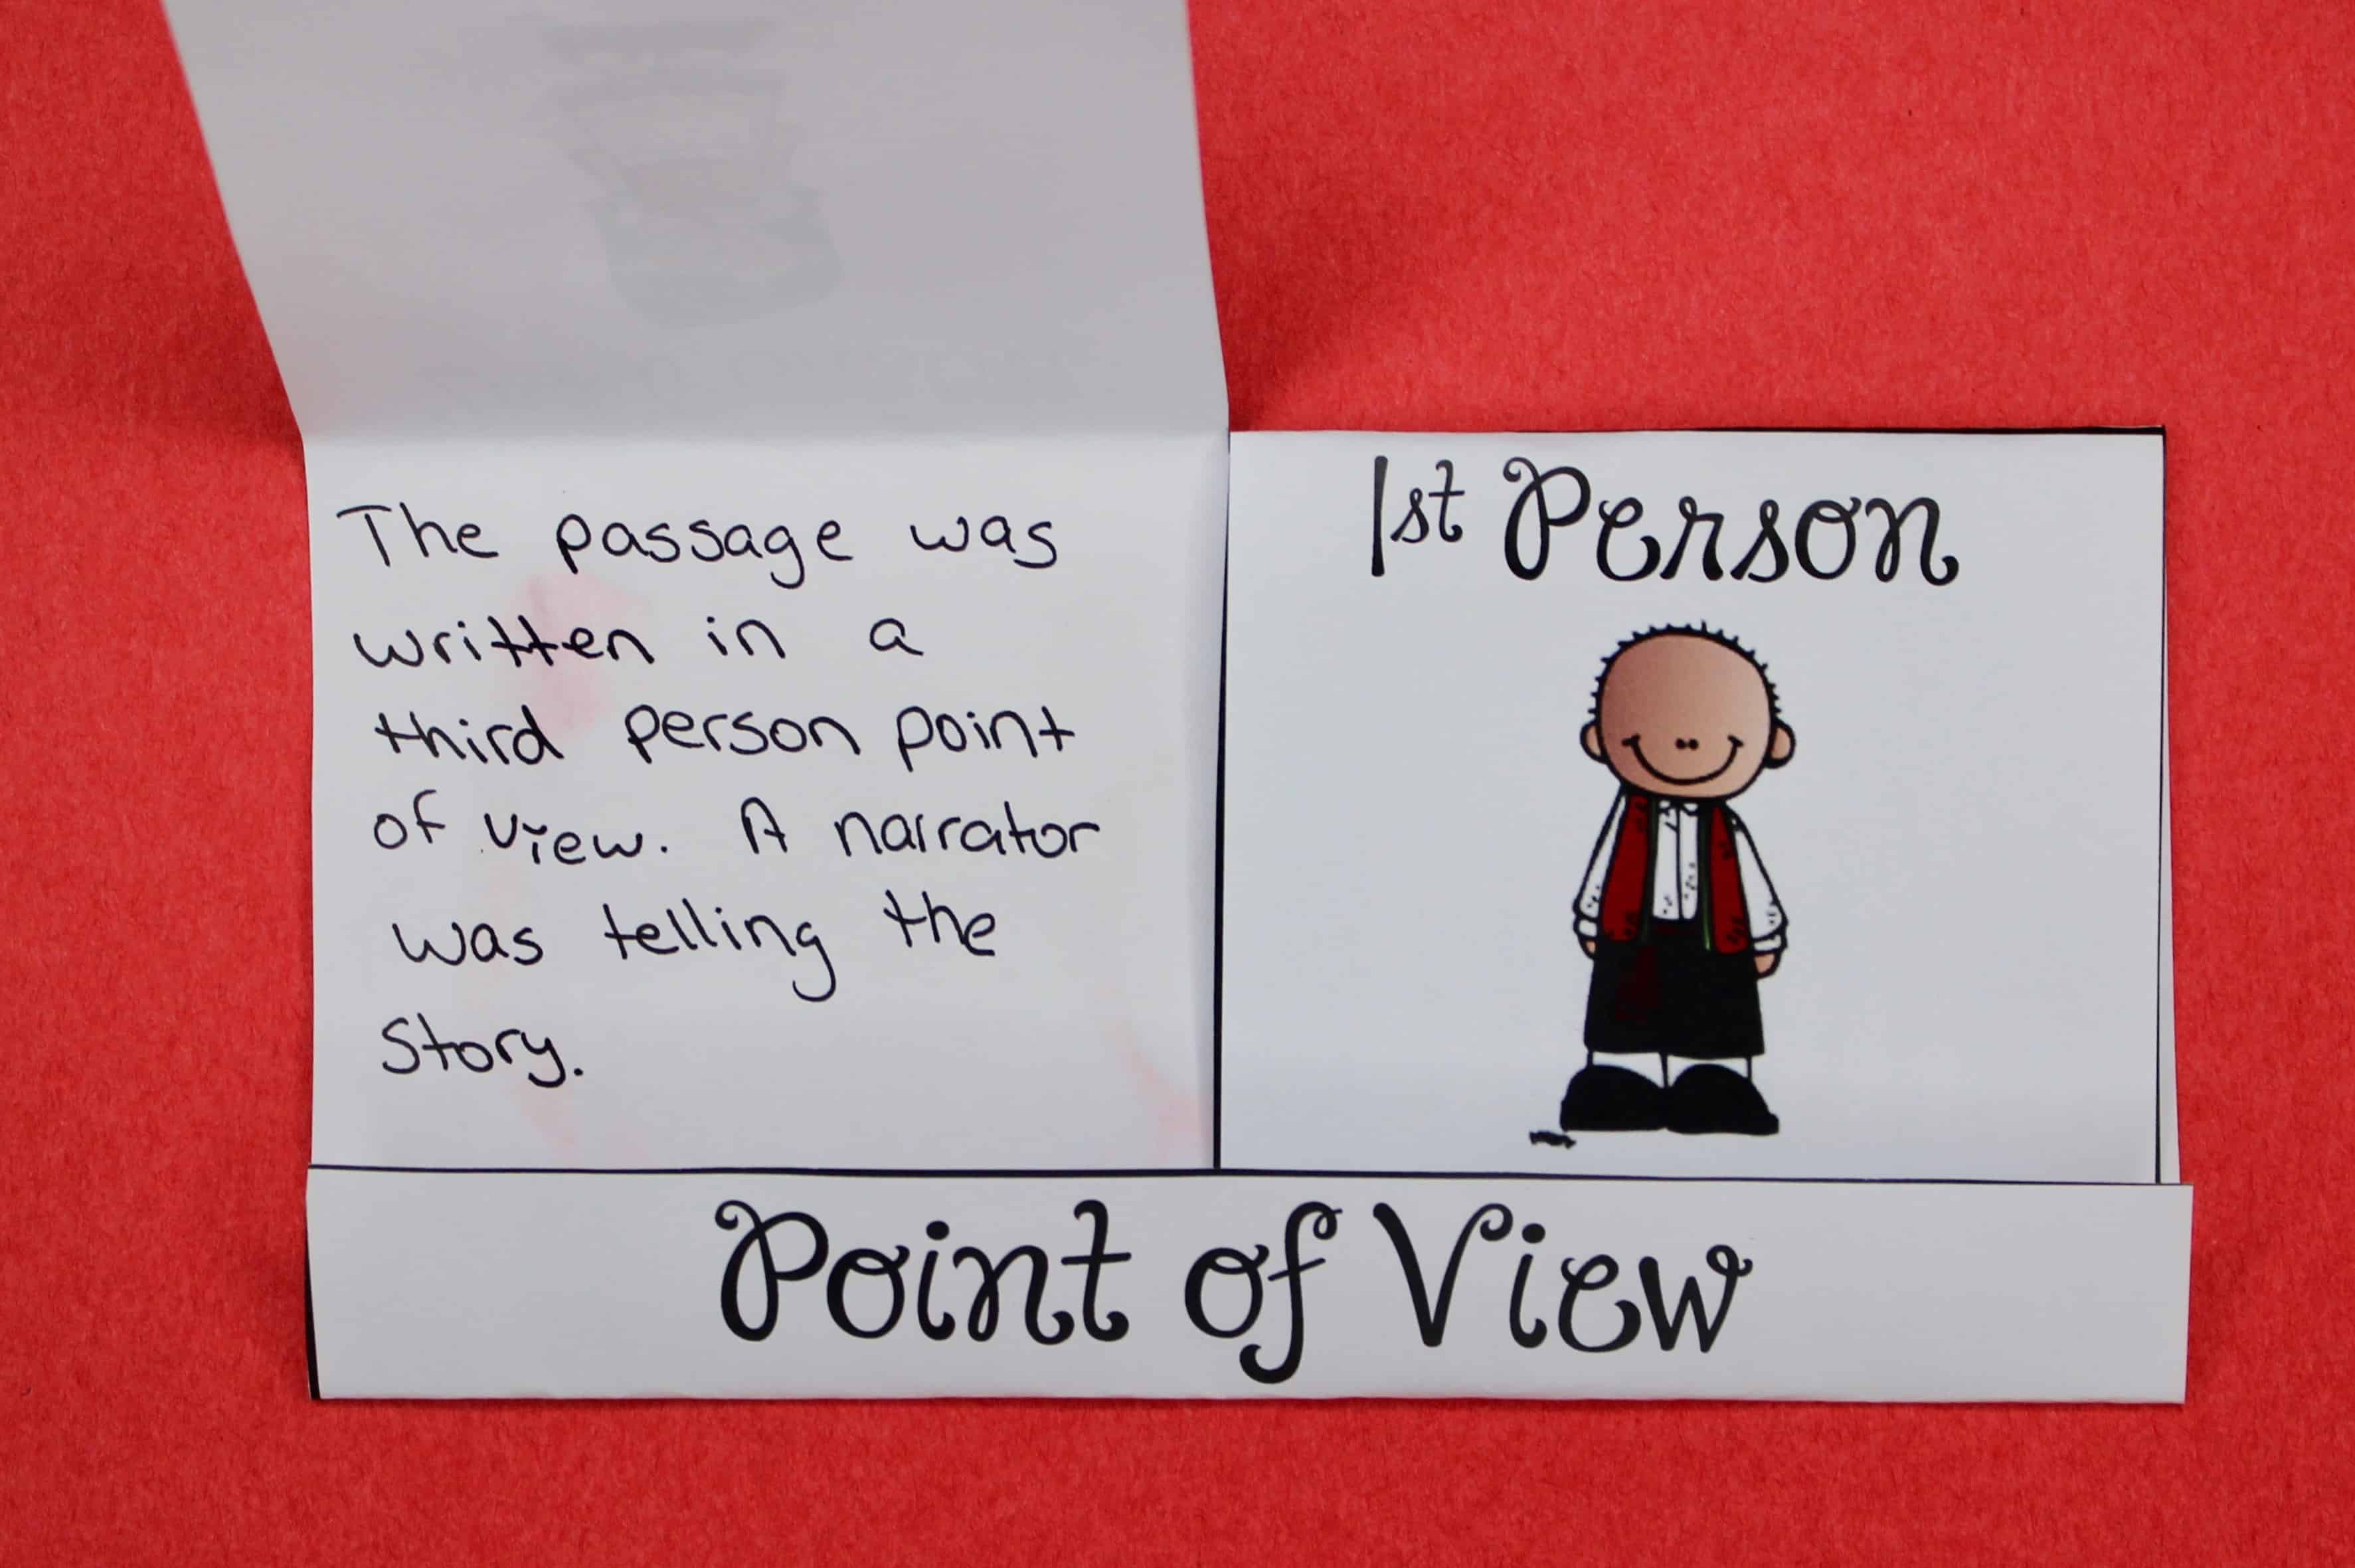 The passage was
written in a
third person point
of view. A narrator
was telling the
story.
1st Person
Point of View